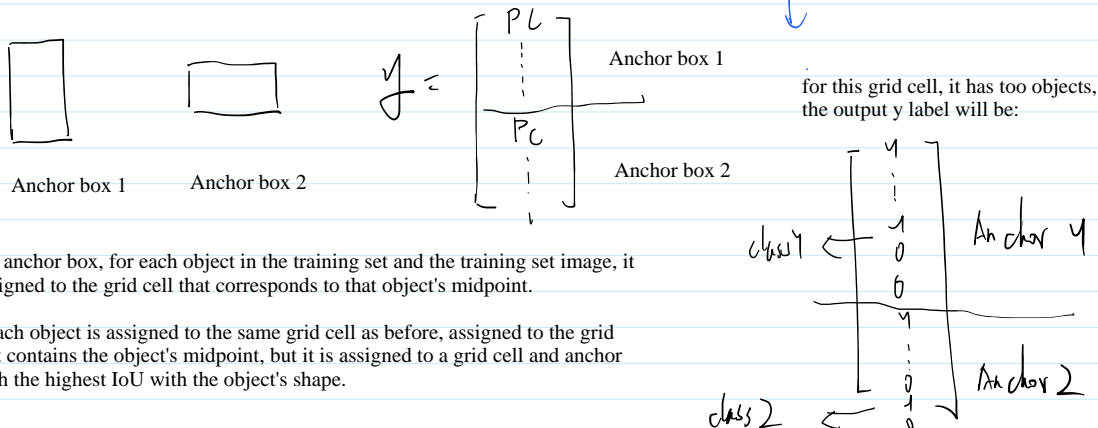 PC
y =
Anchor box 1
PC
Anchor box 2
Anchor box 1
Anchor box 2
for this grid cell, it has too objects,
the output y label will be:
1
1
class 1
0
0
Anchor 1
1
0
1
0
class 2
Anchor 2
anchor box, for each object in the training set and the training set image, it
igned to the grid cell that corresponds to that object's midpoint.
ach object is assigned to the same grid cell as before, assigned to the grid
contains the object's midpoint, but it is assigned to a grid cell and anchor
h the highest IoU with the object's shape.